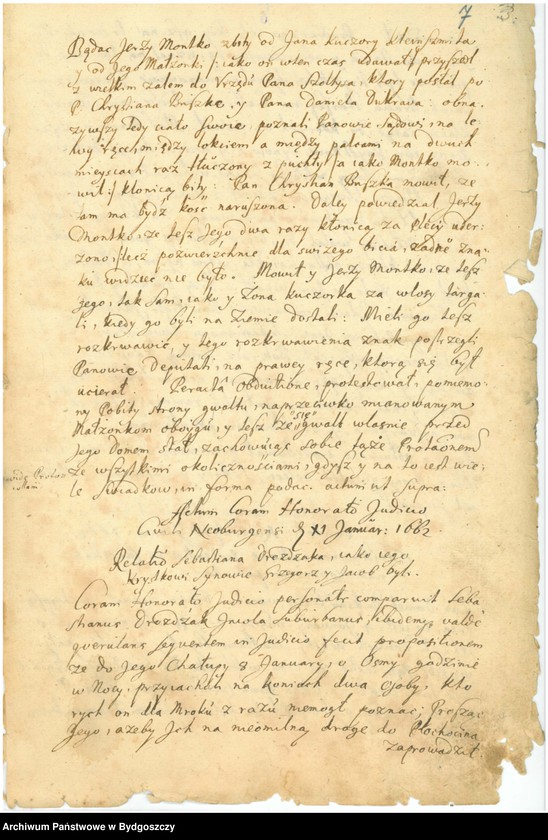 7 3.
Będąc Jerzy Montko zbity od Jana Kuczory kleinszmita
y od Jego Małżonki /: iako on wten czas udawał / przyszedł
z wielkim żalem do Urzędu Pana Szołtysa, ktory posłał po
P: Chrystiana Buszke, y Pana Daniela Dukrawa: obna-
żywszy tedy ciało swoie, poznali Panowie Sądowi, na le-
wy ręce między łokciem a między palcami na dwuch
mieyscach raz tłuczony z puchły /a iako Montko mo-
wił:/ kłonicą bity: Pan Chrystian Buszka mowił, że
tam ma bydź kość naruszona. Daley powiedział Jerzy
Montko, że tesz Jego dwa razy kłonicą za plecy uder-
zono, lecz powierzchnie dla swiżego bicia, żadne zna-
ku widzieć nie było. Mowił y Jerzy Montko, że tesz
Jego, tak sam, iako y Żona Kuczorka za włosy targa-
li, kiedy go byli na Ziemie dostali: Mieli go tesz
rozkrwawić, y tego rozkrwawienia znak postrzegli
Panowie Deputati, na prawey ręce, ktorą się był
ucierał. Peracta Obductione, protestował, pomienio-
ny Pobity strony gwałtu, naprzeciwko mianowanym
Małżonkom oboygu, y tesz że się gwałt własnie przed
Jego Domem stał, zachowuiąc sobie tąże Protaonem
ze wszytkimi okolicznosciami, gdysz y na to iest wie-
le swiadkow, in forma podac. actum ut supra:
Actum Coram Honorato Judicio
Civili Neoburgensi d XI Januar: 1662.
Relatio Sebastiana Drozdzaka, iako iego
Krystkowi Synowie Grzegorz y Jacob byli.
Coram Honorato Judicio personalr comparuit Seba-
stianus Drozdzak Incola Suburbanus, ibidemq valde
querulans sequentem in Judicio fecit propositionem
że do Jego Chałupy 8 January, o Osmy godzinie
w Nocy, przyiachali na koniach dwa osoby, kto-
rych on dla Mroku z razu niemogł poznac; Prosząc
Jego, ażeby Jch na nieomilną drogę do Płochocina
zaprowadził.
Archiwum Państwowe w Bydgoszczy